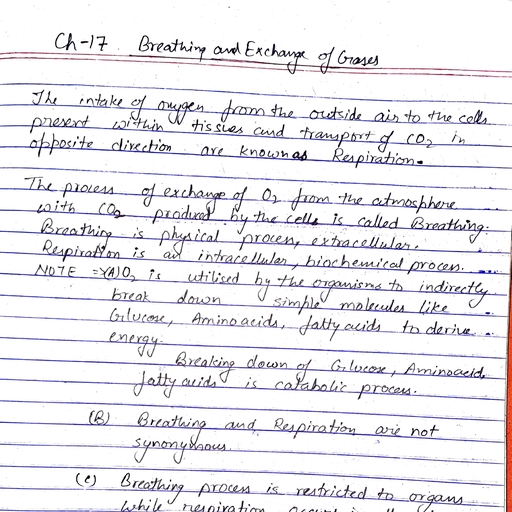 Ch-17 Breathing and Exchange of Gases
The intake of oxygen from the outside air to the cells
present within tissues and transport of CO2 in
opposite direction are known as Respiration.
The process of exchange of O2 from the atmosphere
with CO2 produced by the cells is called Breathing.
Breathing is physical process, extracellular.
Respiration is an intracellular, biochemical process.
NOTE => (A) O2 is utilised by the organisms to indirectly
break down simple molecules like
Glucose, Amino acids, fatty acids to derive
energy.
Breaking down of Glucose, Aminoacid,
fatty acids is catabolic process.
(B) Breathing and Respiration are not
synonymous.
(c) Breathing process is restricted to organs
While respiration occurs in